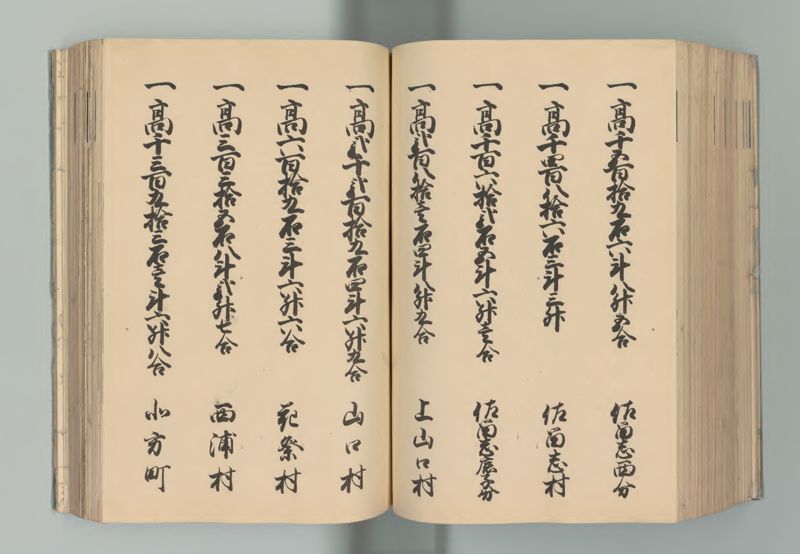 一高千五百拾九石六斗八升五合 佐苗志西分
一高千四百八拾六石三斗三升 佐苗志村
一高千百六拾弐石五斗六升壱合 佐苗志 分
一高弐百八拾壱石四斗八升五合 上山口村
一高弐千弐百拾九石四斗六升九合 山口村
一高六百拾九石三斗六升六合 村
一高三百三拾五石八斗弐升七合 西浦村
一高千三百五拾三石壱斗六升八合 北方町